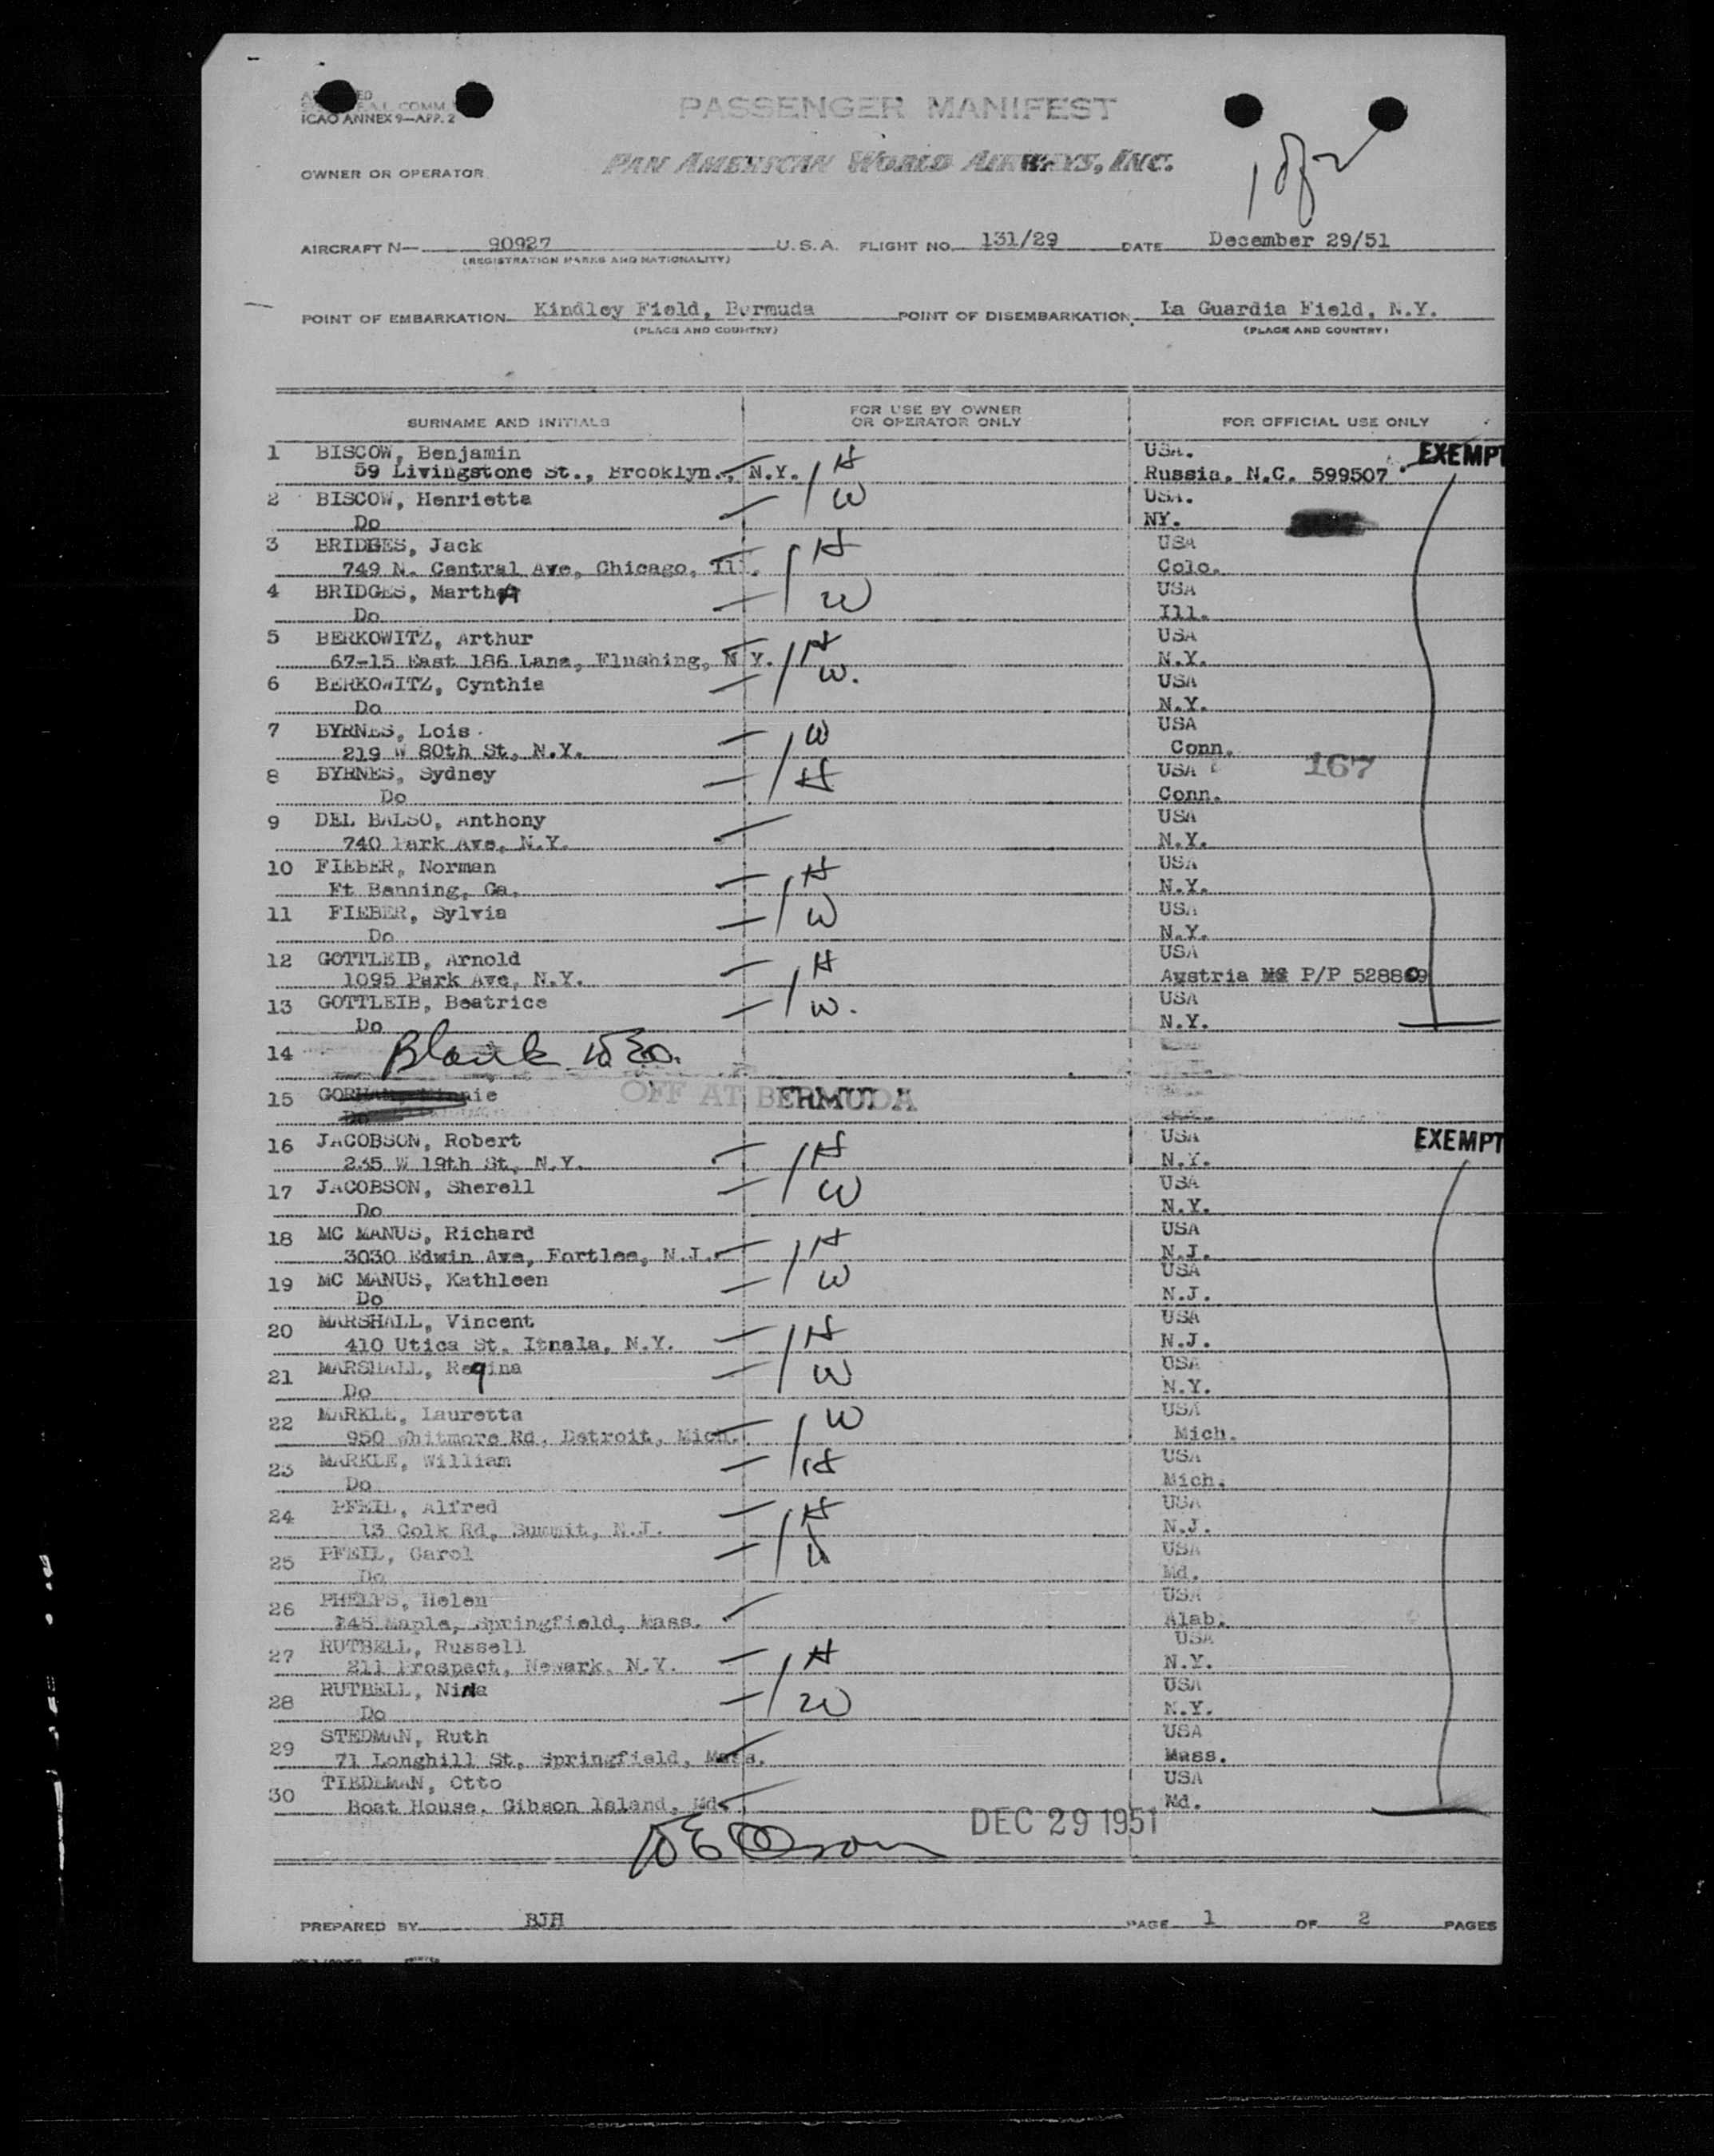 ICAO ANNEX 9—APP. 2
PASSENGER MANIFEST
1 of 2
OWNER OR OPERATOR PAN AMERICAN WORLD AIRWAYS, INC.
AIRCRAFT N— 90927 U.S.A. FLIGHT NO. 131/29 DATE December 29/51
(REGISTRATION MARKS AND NATIONALITY)
POINT OF EMBARKATION Kindley Field, Bermuda POINT OF DISEMBARKATION La Guardia Field, N.Y.
(PLACE AND COUNTRY) (PLACE AND COUNTRY)
SURNAME AND INITIALS FOR USE BY OWNER OR OPERATOR ONLY FOR OFFICIAL USE ONLY
1 BISCOW, Benjamin USA. EXEMPT
59 Livingstone St., Brooklyn., N.Y. H Russia, N.C. 599507
2 BISCOW, Henrietta W USA.
Do NY.
3 BRIDGES, Jack H USA
749 N. Central Ave, Chicago, Ill. Colo.
4 BRIDGES, Martha W USA
Do Ill.
5 BERKOWITZ, Arthur H USA
67-15 East 186 Lane, Flushing, N.Y. N.Y.
6 BERKOWITZ, Cynthia W. USA
Do N.Y.
7 BYRNES, Lois W USA
219 W 80th St, N.Y. Conn.
8 BYRNES, Sydney H USA 167
Do Conn.
9 DEL BALSO, Anthony USA
740 Park Ave, N.Y. N.Y.
10 FIEBER, Norman H USA
Ft Benning, Ga. N.Y.
11 FIEBER, Sylvia W USA
Do N.Y.
12 GOTTLEIB, Arnold H USA
1095 Park Ave, N.Y. Austria P/P 528869
13 GOTTLEIB, Beatrice W. USA
Do N.Y.
14 Blank
15 OFF AT BERMUDA
16 JACOBSON, Robert H USA EXEMPT
235 W 19th St, N.Y. N.Y.
17 JACOBSON, Sherell W USA
Do N.Y.
18 MC MANUS, Richard H USA
3030 Edwin Ave, Fortlee, N.J. N.J.
19 MC MANUS, Kathleen W USA
Do N.J.
20 MARSHALL, Vincent H USA
410 Utica St, Itnala, N.Y. N.J.
21 MARSHALL, Regina W USA
Do N.Y.
22 MARKLE, Lauretta W USA
950 Whitmore Rd, Detroit, Mich. Mich.
23 MARKLE, William H USA
Do Mich.
24 PFEIL, Alfred H USA
13 Colk Rd, Summit, N.J. N.J.
25 PFEIL, Carol W USA
Do Md.
26 PHELPS, Helen USA
145 Maple, Springfield, Mass. Alab.
27 RUTBELL, Russell H USA
211 Prospect, Newark, N.Y. N.Y.
28 RUTBELL, Nina W USA
Do N.Y.
29 STEDMAN, Ruth USA
71 Longhill St, Springfield, Mass. Mass.
30 TIEDEMAN, Otto USA
Boat House, Gibson Island, Md. Md.
DEC 29 1951
PREPARED BY BJH PAGE 1 OF 2 PAGES